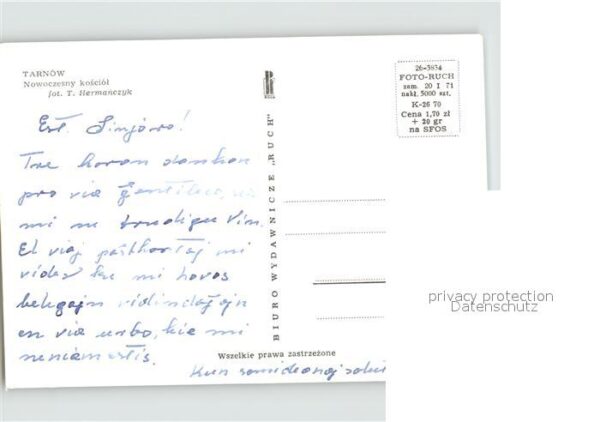 TARNÓW
Nowoczesny kościół
fot. T. Hermańczyk
Est. Sinjoro!
Tre koran dankon
pro via ĝentileco,
mi ne trudigu Vin.
El viaj poŝtkartoj mi
vidas ke mi havos
belegajn vidindaĵojn
en via urbo, kie mi
neniam estis.
Kun samideanoj
BIURO WYDAWNICZE „RUCH"
Wszelkie prawa zastrzeżone
26-3834
FOTO-RUCH
zam. 20 I 71
nakł. 5000 szt.
K-26 70
Cena 1,70 zł
+ 20 gr
na SFOS
privacy protection
Datenschutz